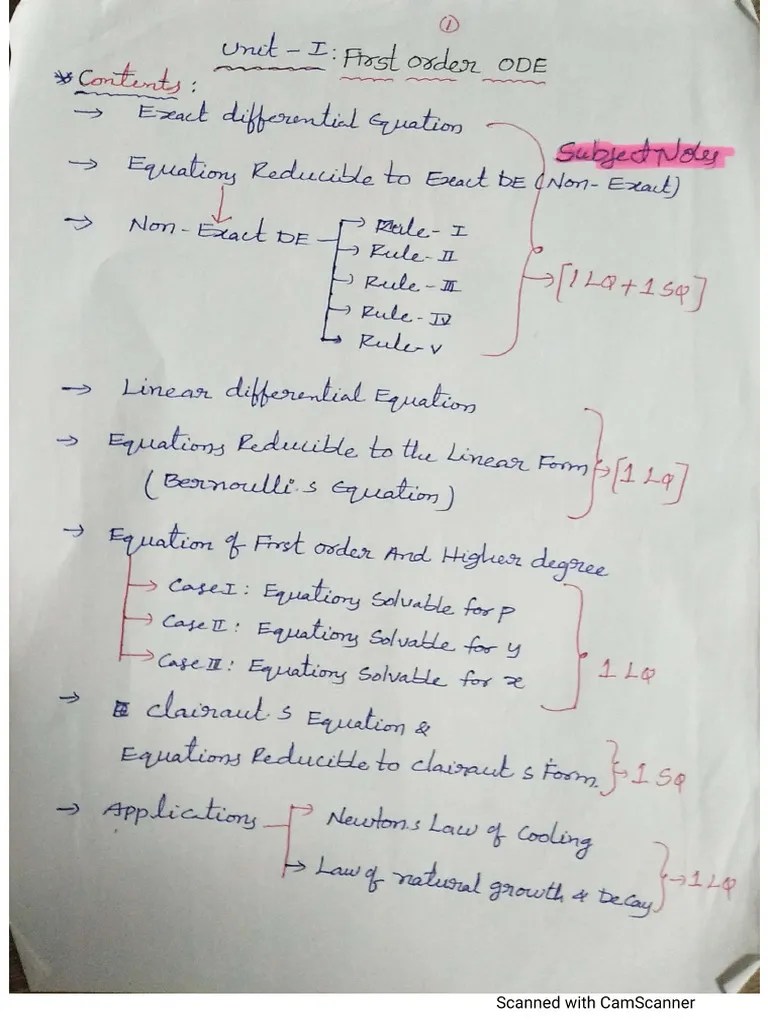 ①
Unit - I: First order ODE
* Contents:
→ Exact differential Equation
Subject Notes
→ Equations Reducible to Exact DE (Non-Exact)
→ Non-Exact DE → Rule - I
→ Rule - II
→ Rule - III
→ Rule - IV
→ Rule - V
→ [1 LQ + 1 SQ]
→ Linear differential Equation
→ Equations Reducible to the Linear Form
(Bernoulli's Equation)
→ [1 LQ]
→ Equation of First order And Higher degree
→ Case I: Equations Solvable for p
→ Case II: Equations Solvable for y
→ Case III: Equations Solvable for x
1 LQ
→ Clairaut's Equation &
Equations Reducible to Clairaut's Form
→ 1 SQ
→ Applications → Newton's Law of Cooling
→ Law of natural growth & Decay
→ 1 LQ
Scanned with CamScanner